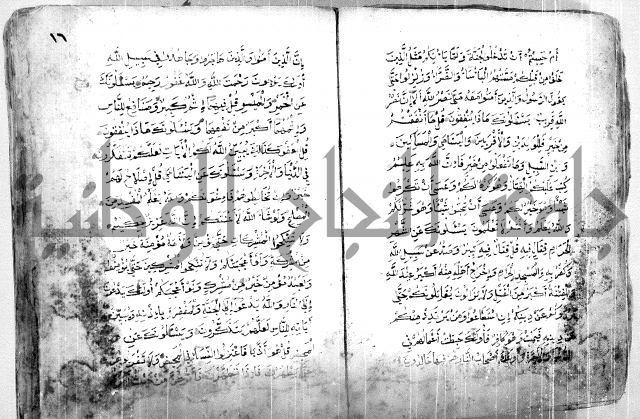 أم حسبتم أن تدخلوا الجنة ولما يأتكم مثل الذين
خلوا من قبلكم مستهم البأساء والضراء وزلزلوا حتى
يقول الرسول والذين آمنوا معه متى نصر الله ألا إن نصر
الله قريب يسئلونك ماذا ينفقون قل ما أنفقتم
من خير فللوالدين والأقربين واليتامى والمساكين
وابن السبيل وما تفعلوا من خير فإن الله به عليم
كتب عليكم القتال وهو كره لكم وعسى أن تكرهوا
شيئا وهو خير لكم وعسى أن تحبوا شيئا وهو شر لكم
والله يعلم وأنتم لا تعلمون يسئلونك عن الشهر
الحرام قتال فيه قل قتال فيه كبير وصد عن سبيل الله
وكفر به والمسجد الحرام وإخراج أهله منه أكبر عند الله
والفتنة أكبر من القتل ولا يزالون يقاتلونكم حتى
يردوكم عن دينكم إن استطاعوا ومن يرتدد منكم
عن دينه فيمت وهو كافر فأولئك حبطت أعمالهم في
الدنيا والآخرة وأولئك أصحاب النار هم فيها خالدون
١٦
إن الذين آمنوا والذين هاجروا وجاهدوا في سبيل الله
أولئك يرجون رحمت الله والله غفور رحيم يسئلونك
عن الخمر والميسر قل فيهما إثم كبير ومنافع للناس
وإثمهما أكبر من نفعهما ويسئلونك ماذا ينفقون
قل العفو كذلك يبين الله لكم الآيات لعلكم تتفكرون
في الدنيا والآخرة ويسئلونك عن اليتامى قل إصلاح لهم
خير وإن تخالطوهم فإخوانكم والله يعلم المفسد من
المصلح ولو شاء الله لأعنتكم إن الله عزيز حكيم
ولا تنكحوا المشركات حتى يؤمن ولأمة مؤمنة خير
من مشركة ولو أعجبتكم ولا تنكحوا المشركين حتى يؤمنوا
ولعبد مؤمن خير من مشرك ولو أعجبكم أولئك يدعون
إلى النار والله يدعو إلى الجنة والمغفرة بإذنه ويبين
آياته للناس لعلهم يتذكرون ويسئلونك عن
المحيض قل هو أذى فاعتزلوا النساء في المحيض ولا تقربوهن
حتى يطهرن فإذا تطهرن فأتوهن من حيث
جامعة النجاح الوطنية